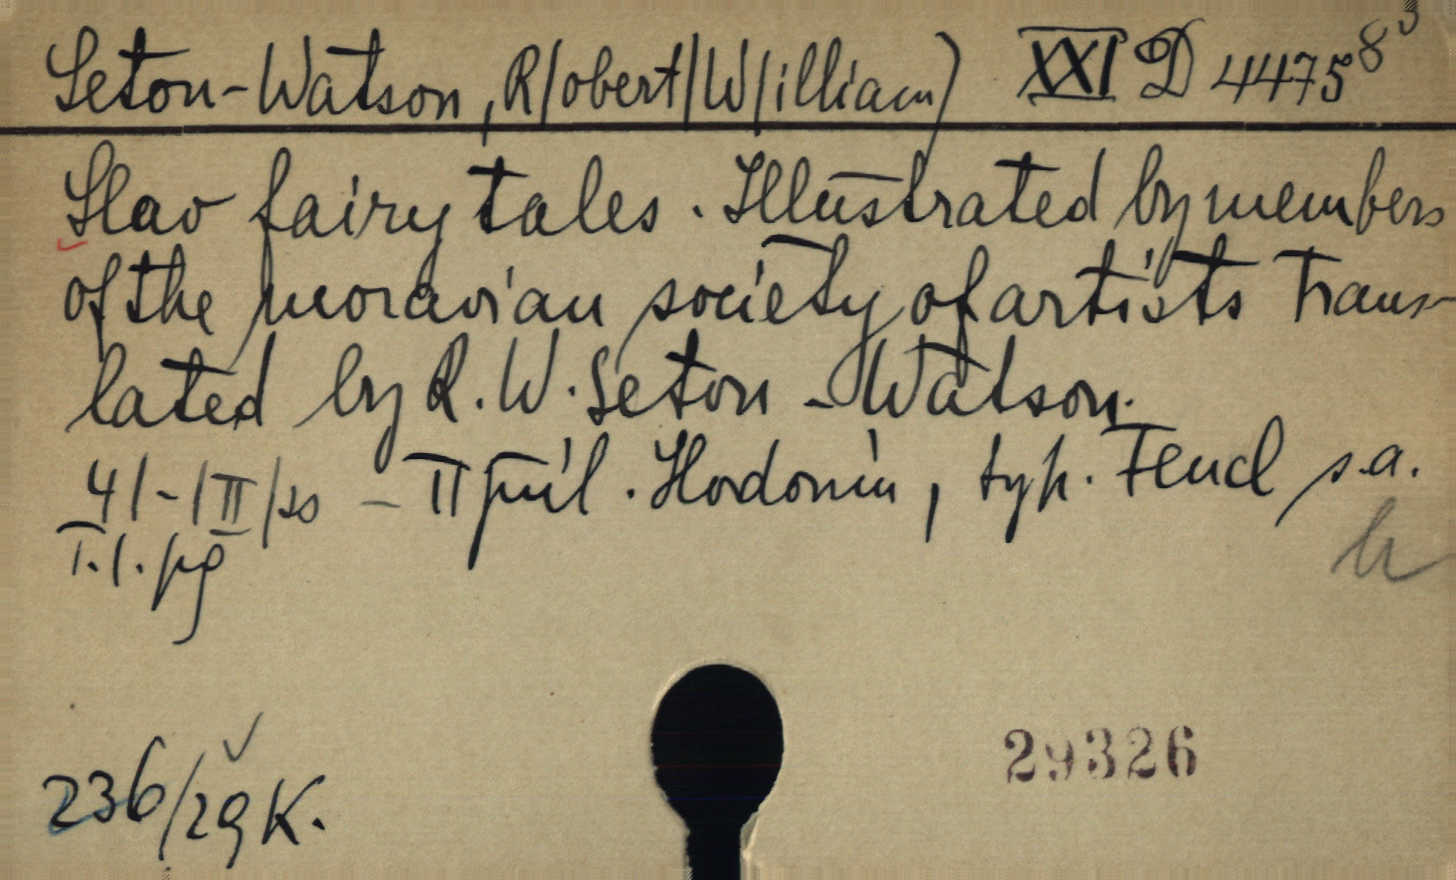 Seton-Watson, R/obert/W/illiam) XXI D 4475 8 3
Slav fairy tales. Illustrated by members
of the moravian society of artists Trans-
lated by R. W. Seton-Watson.
4/-/II/ - II příl. Hodonín, typ. Fencl s.a.
T.l. pg
236/29 K.
29326